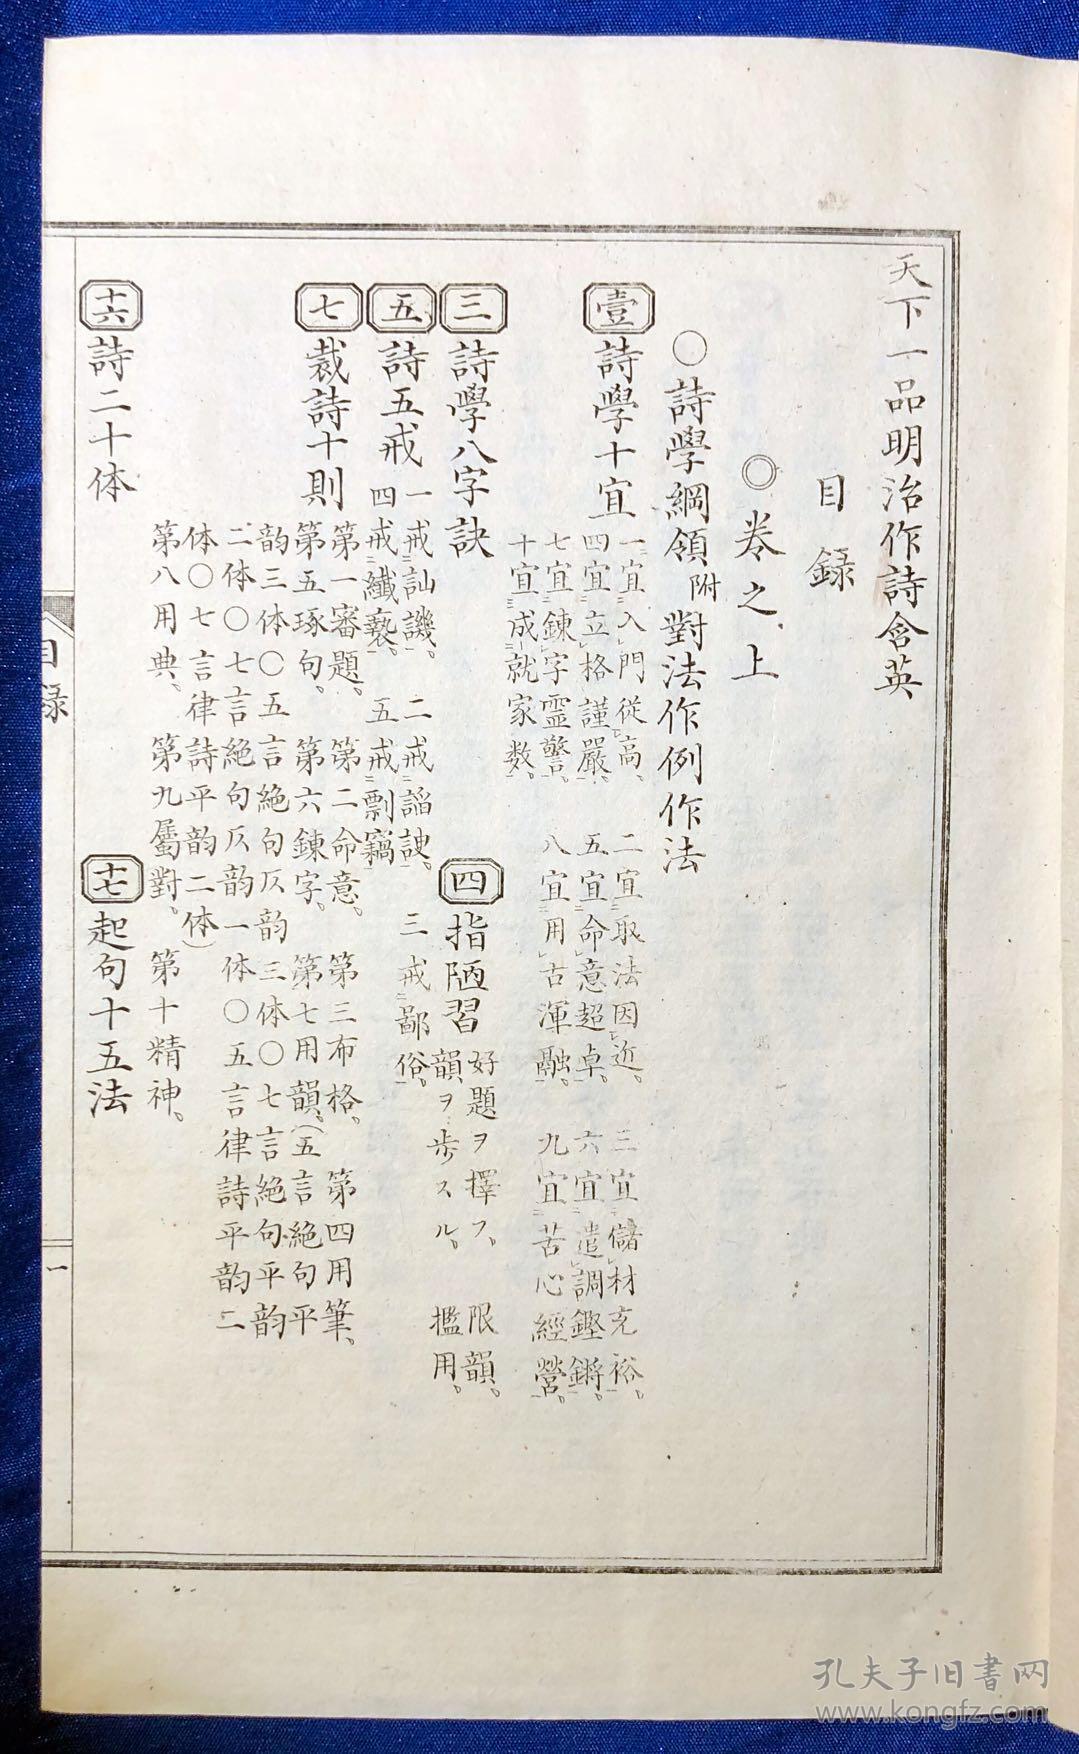 天下一品明治作詩含英
目録
◎卷之上
○詩學綱領附對法作例作法
壹 詩學十宜
一宜入門從高。 二宜取法因近。 三宜儲材充裕。
四宜立格謹嚴。 五宜命意超卓。 六宜遣調鏗鏘。
七宜錬字靈警。 八宜用古渾融。 九宜苦心經營。
十宜成就家数。
三 詩學八字訣
四 指陋習
好題ヲ擇フ。 限韻。
韻ヲ歩スル。 濫用。
五 詩五戒
一戒訕譏。 二戒謟諛。 三戒鄙俗。
四戒纎褻。 五戒剽竊
七 裁詩十則
第一審題。 第二命意。 第三布格。 第四用筆。
第五琢句。 第六錬字。 第七用韻。(五言絶句平
韵三体〇五言絶句仄韵三体〇七言絶句平韵
二体〇七言絶句仄韵一体〇五言律詩平韵二
体〇七言律詩平韵二体)
第八用典。 第九屬對。 第十精神。
十六 詩二十体
十七 起句十五法
目録
一
孔夫子旧书网
www.kongfz.com